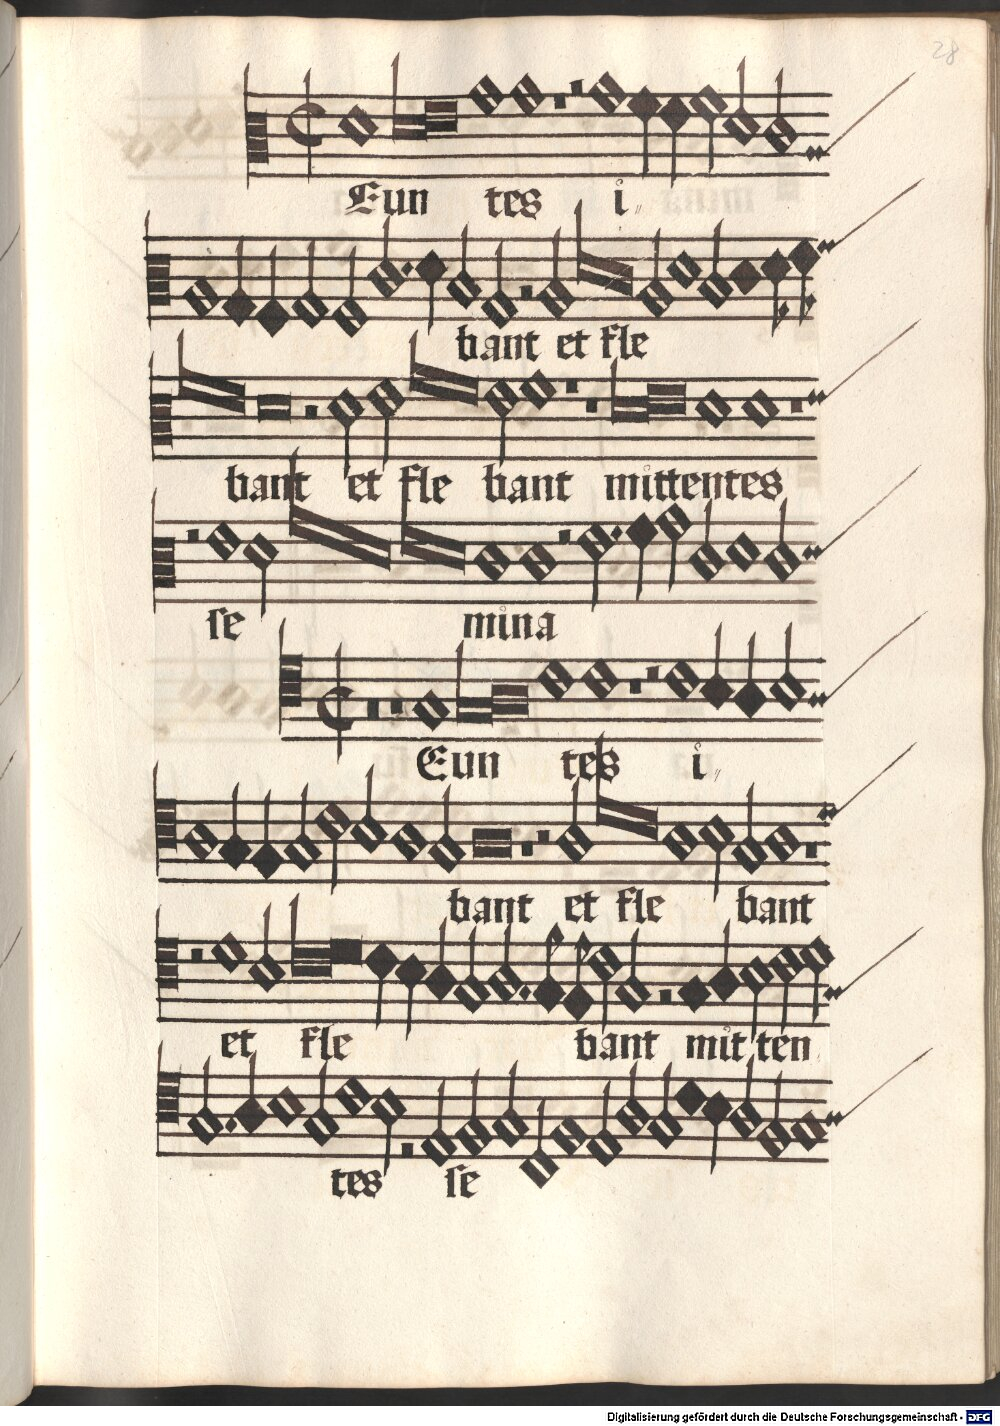 28
Eun tes i
bant et fle
bant et fle bant mittentes
se mina
Eun tes i
bant et fle bant
et fle bant mit ten
tes se
Digitalisierung gefördert durch die Deutsche Forschungsgemeinschaft - DFG